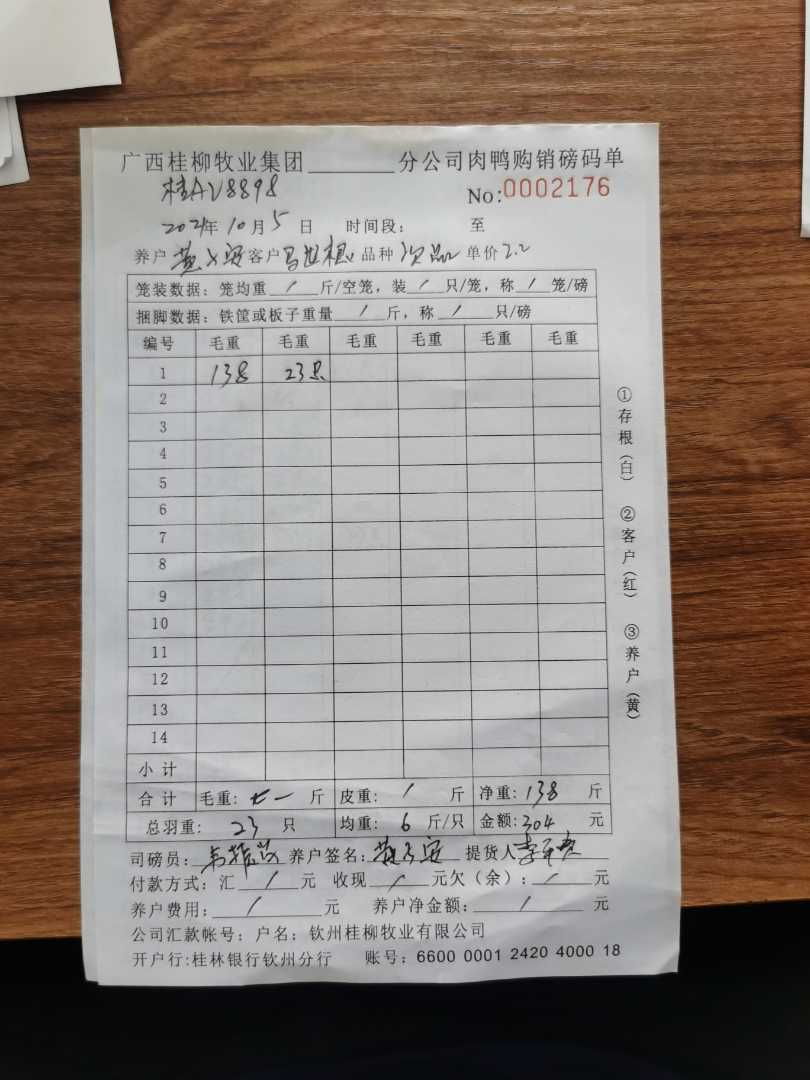 广西桂柳牧业集团______分公司肉鸭购销磅码单
桂AV8898 No:0002176
2021年10月5日 时间段: 至
养户 客户 品种 次品 单价 2.2
笼装数据: 笼均重 / 斤/空笼, 装 / 只/笼, 称 / 笼/磅
捆脚数据: 铁筐或板子重量 / 斤, 称 / 只/磅
编号 毛重 毛重 毛重 毛重 毛重 毛重
1 138 23只
2
3
4
5
6
7
8
9
10
11
12
13
14
小计
合计 毛重: 斤 皮重: / 斤 净重: 138 斤
总羽重: 23 只 均重: 6 斤/只 金额: 304 元
司磅员: 养户签名: 提货人
付款方式: 汇 / 元 收现 / 元欠(余): / 元
养户费用: / 元 养户净金额: / 元
公司汇款帐号: 户名: 钦州桂柳牧业有限公司
开户行:桂林银行钦州分行 账号: 6600 0001 2420 4000 18
①存根(白) ②客户(红) ③养户(黄)